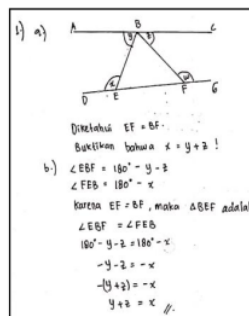 1.) a.)
A B C
y z
x w
D E F G
Diketahui EF = BF.
Buktikan bahwa x = y + z !
b.) ∠EBF = 180° - y - z
∠FEB = 180° - x
Karena EF = BF, maka △BEF adalal
∠EBF = ∠FEB
180° - y - z = 180° - x
-y - z = -x
-(y + z) = -x
y + z = x //.